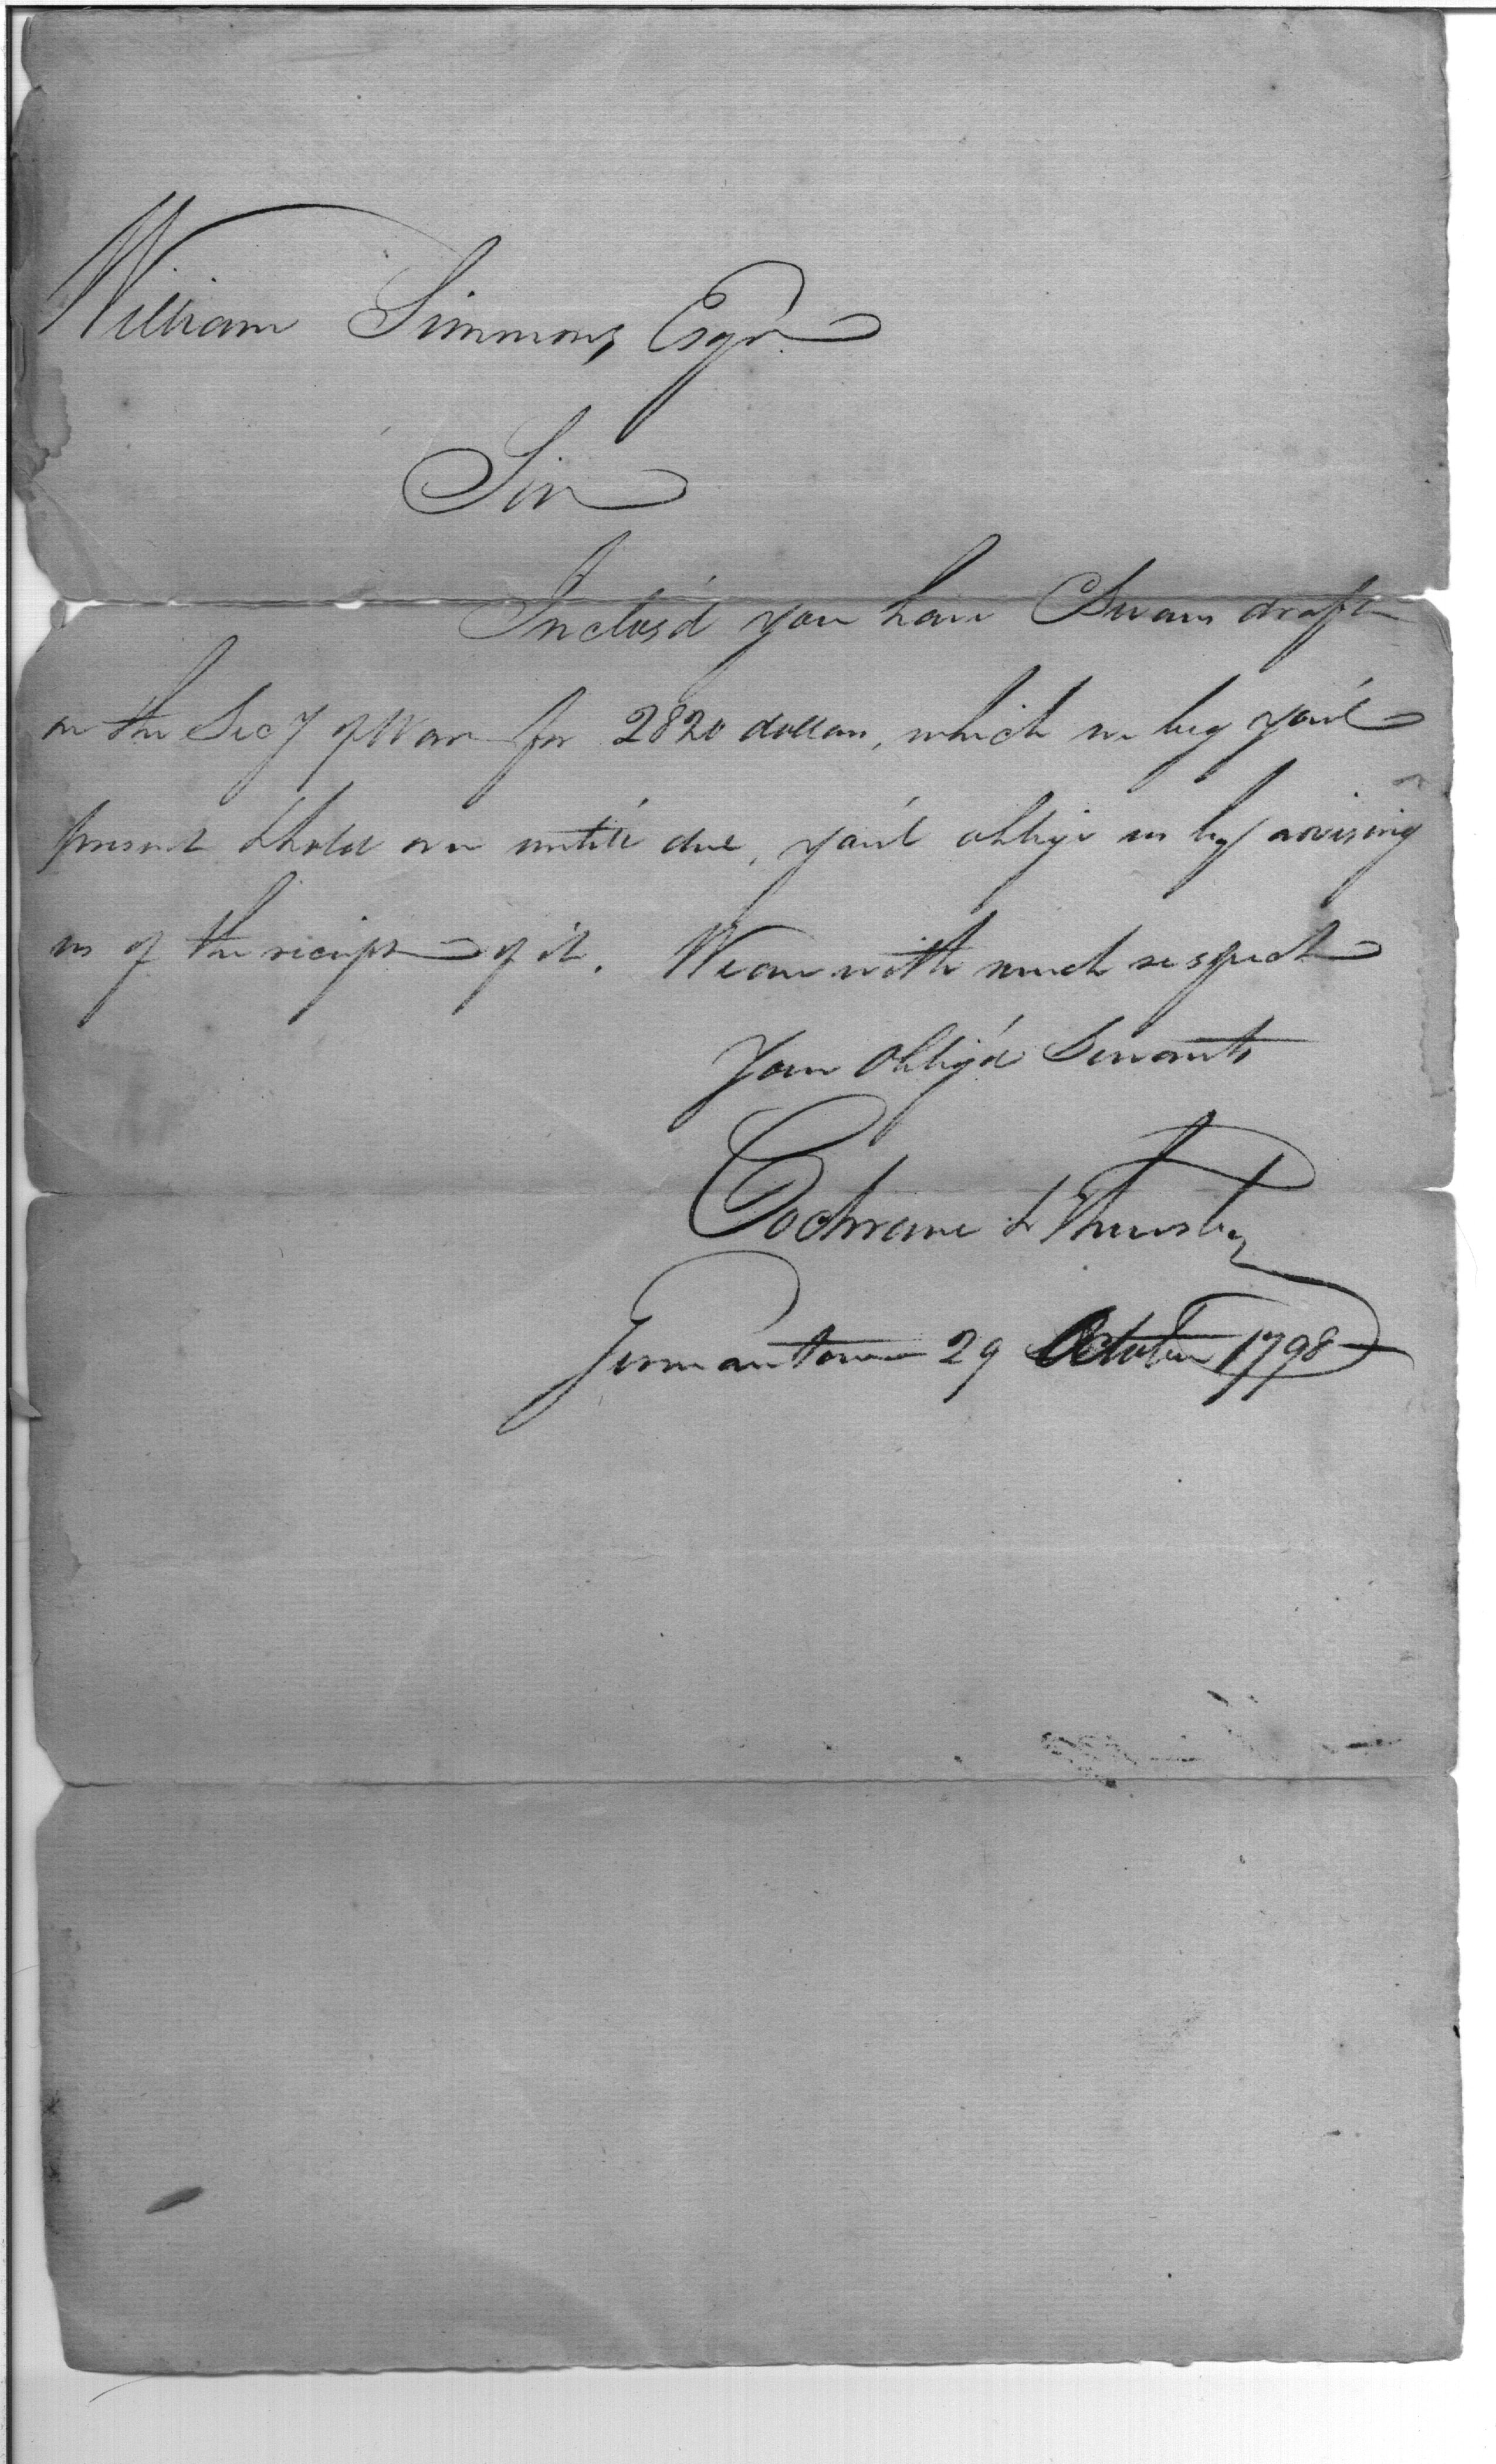 William Simmons, Esqr.
Sir
Inclos'd you have Swans draft
on the Secy of War for 2820 dollars, which we beg you'l
present & hold on untill due, you'l oblige us by advising
us of the reciept of it. We are with much respect
Your Oblig'd Servants
Cochrane & Thursby
Germantown 29 October 1798